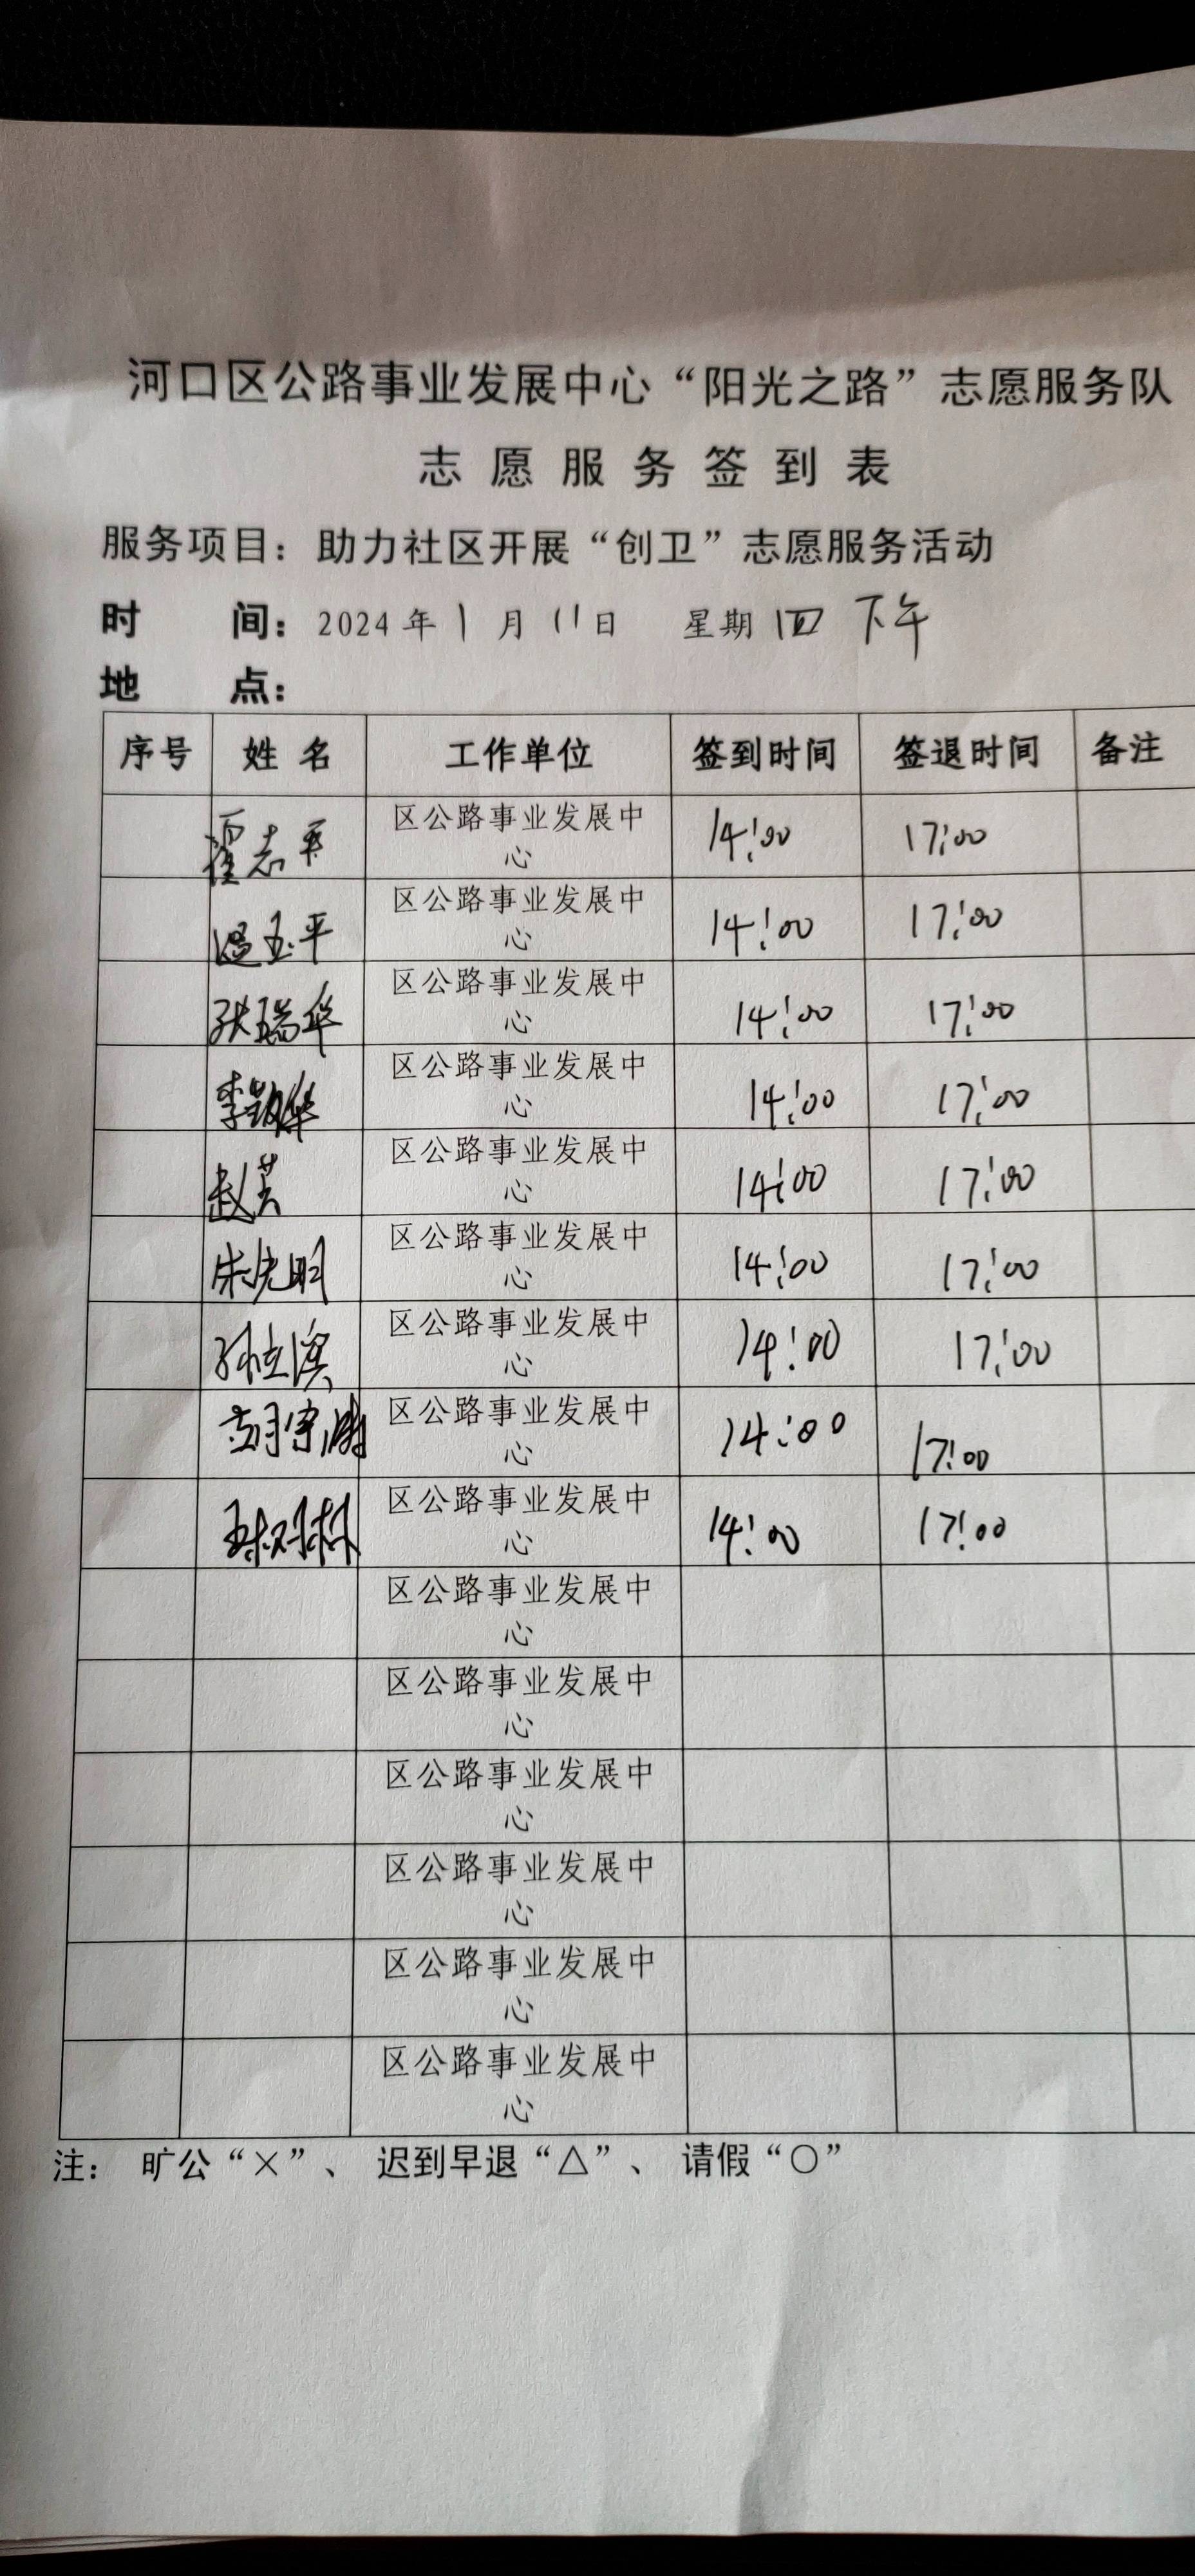 河口区公路事业发展中心“阳光之路”志愿服务队
志愿服务签到表
服务项目：助力社区开展“创卫”志愿服务活动
时 间：2024年1月11日 星期四 下午
地 点：
序号 姓名 工作单位 签到时间 签退时间 备注
霍志平 区公路事业发展中 14:00 17:00
心
温玉平 区公路事业发展中 14:00 17:00
心
张瑞华 区公路事业发展中 14:00 17:00
心
李 区公路事业发展中 14:00 17:00
心
赵芸 区公路事业发展中 14:00 17:00
心
宋光明 区公路事业发展中 14:00 17:00
心
孙立滨 区公路事业发展中 14:00 17:00
心
胡宝 区公路事业发展中 14:00 17:00
心
区公路事业发展中 14:00 17:00
心
区公路事业发展中
心
区公路事业发展中
心
区公路事业发展中
心
区公路事业发展中
心
区公路事业发展中
心
区公路事业发展中
心
注： 旷公“×”、 迟到早退“△”、 请假“○”